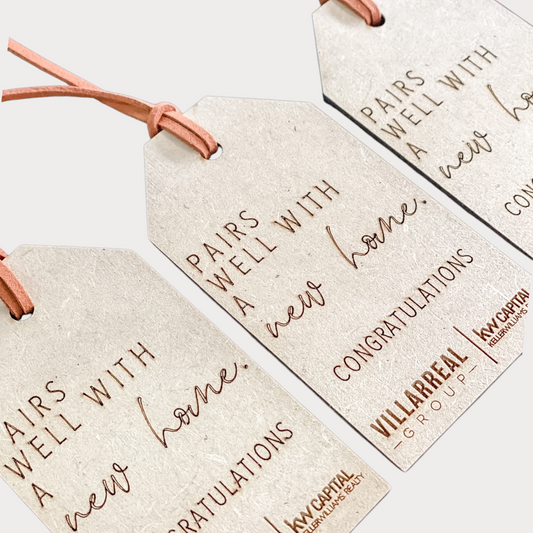 PAIRS
WELL WITH
A new home.
CONGRATULATIONS
VILLARREAL
— GROUP —
kw CAPITAL
KELLERWILLIAMS R
PAIRS
WELL WITH
A new ho
CON
AIRS
WELL WITH
A new home.
GRATULATIONS
kw CAPITAL
KELLERWILLIAMS REALTY